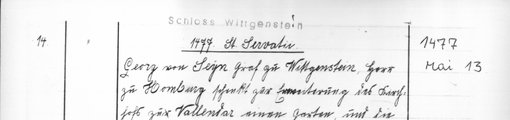 Schloss Wittgenstein
14 " 1477 St Servatii. 1477
Georg von Seyn Graf zu Wittgenstein, Herr Mai 13
zu Homburg schenkt zur Erweiterung des Kirch-
hofs zur Vallendar einen Garten, und die